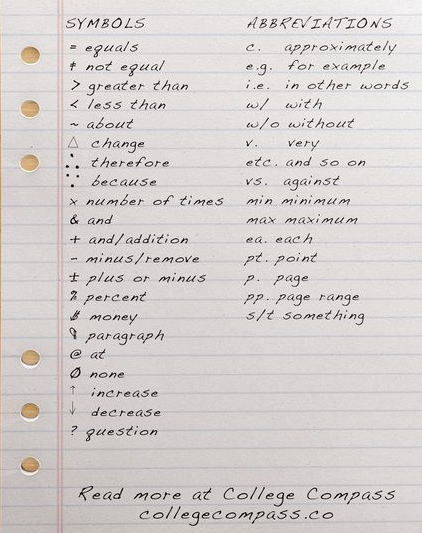 SYMBOLS
= equals
≠ not equal
> greater than
< less than
~ about
△ change
∴ therefore
∵ because
x number of times
& and
+ and/addition
- minus/remove
± plus or minus
% percent
$ money
¶ paragraph
@ at
Ø none
↑ increase
↓ decrease
? question
ABBREVIATIONS
c. approximately
e.g. for example
i.e. in other words
w/ with
w/o without
v. very
etc. and so on
vs. against
min minimum
max maximum
ea. each
pt. point
p. page
pp. page range
s/t something
Read more at College Compass
collegecompass.co